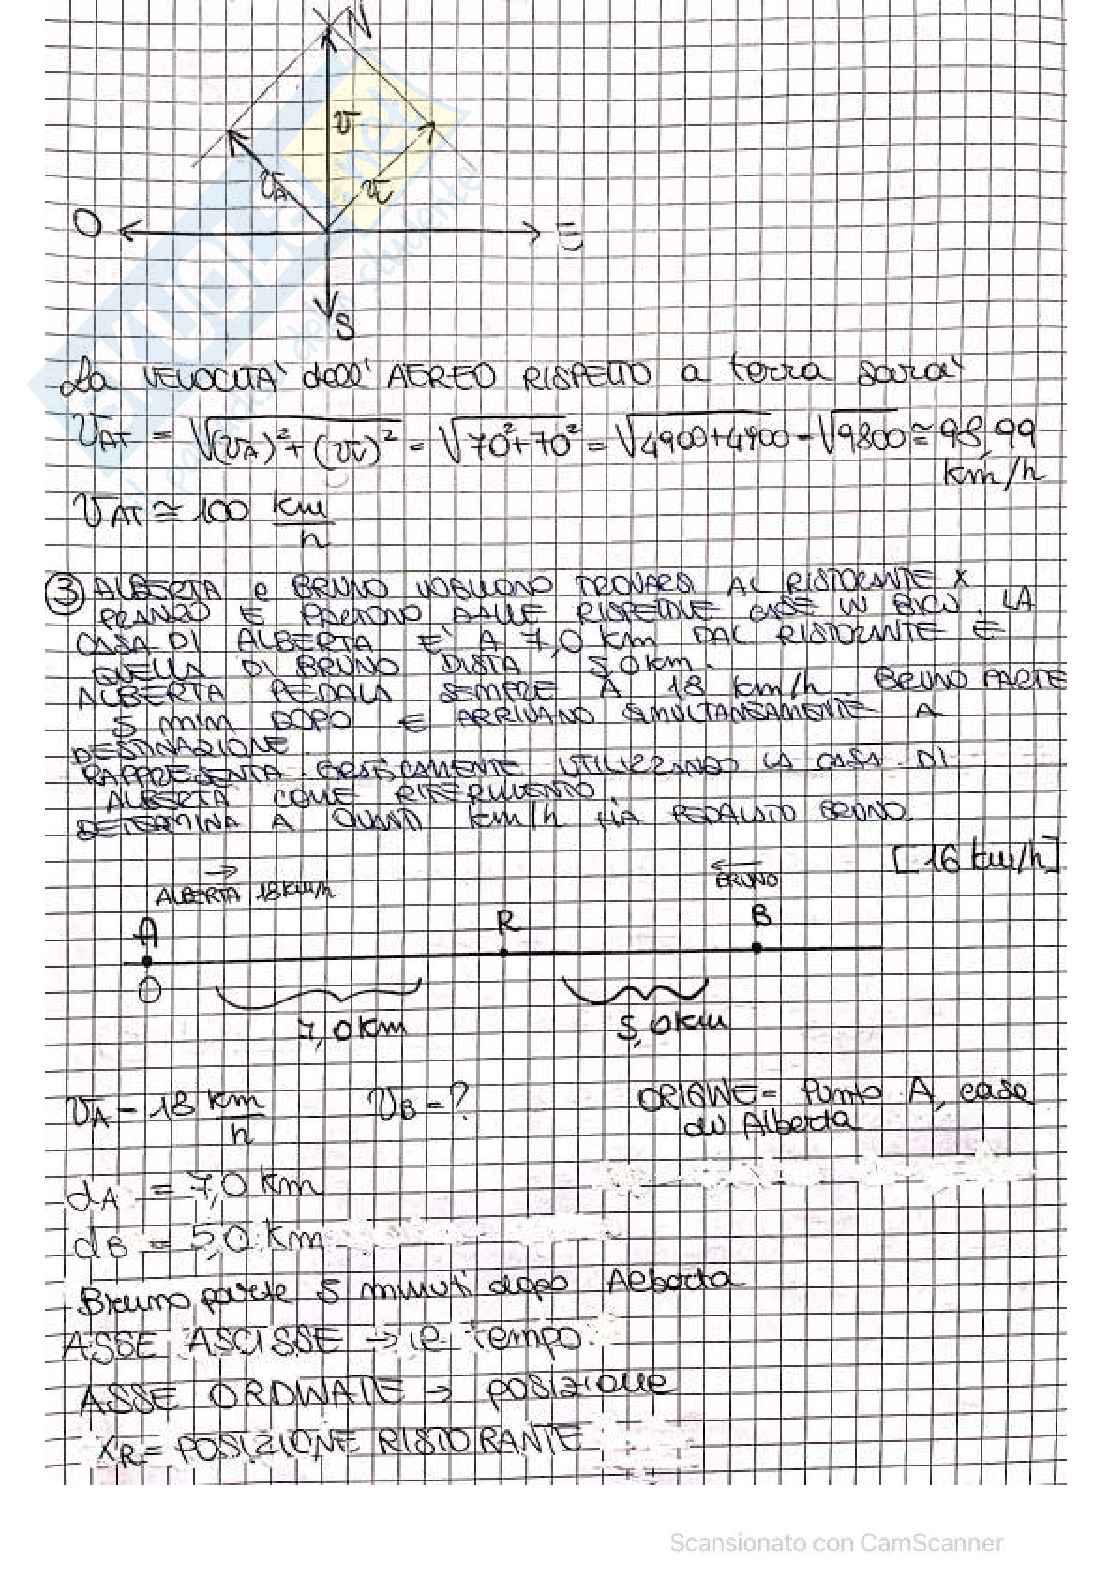 N
v
v_A
v_V
O
E
S
La VELOCITA' dell' AEREO RISPETTO a terra sara'
v_AT = √(v_A)² + (v_V)² = √70² + 70² = √4900 + 4900 = √9800 ≅ 98,99 km/h
v_AT ≃ 100 km/h
③ ALBERTA e BRUNO VOGLIONO TROVARSI AL RISTORANTE X
PRANZO E PARTONO DALLE RISPETTIVE CASE IN BICI. LA
CASA DI ALBERTA E' A 7,0 km DAL RISTORANTE E
QUELLA DI BRUNO DISTA 5,0 km.
ALBERTA PEDALA SEMPRE A 18 km/h. BRUNO PARTE
5 min DOPO E ARRIVANO SIMULTANEAMENTE A
DESTINAZIONE.
RAPPRESENTA GRAFICAMENTE UTILIZZANDO LA CASA DI
ALBERTA COME RIFERIMENTO.
DETERMINA A QUANTI km/h HA PEDALATO BRUNO.
[16 km/h]
→ ←
ALBERTA 18 km/h BRUNO
A R B
O
7,0 km 5,0 km
v_A = 18 km/h v_B = ? ORIGINE = Punto A, casa
di Alberta
d_A = 7,0 km
d_B = 5,0 km
Bruno parte 5 minuti dopo Alberta
ASSE ASCISSE → il tempo
ASSE ORDINATE → POSIZIONE
x_R = POSIZIONE RISTORANTE
Scansionato con CamScanner